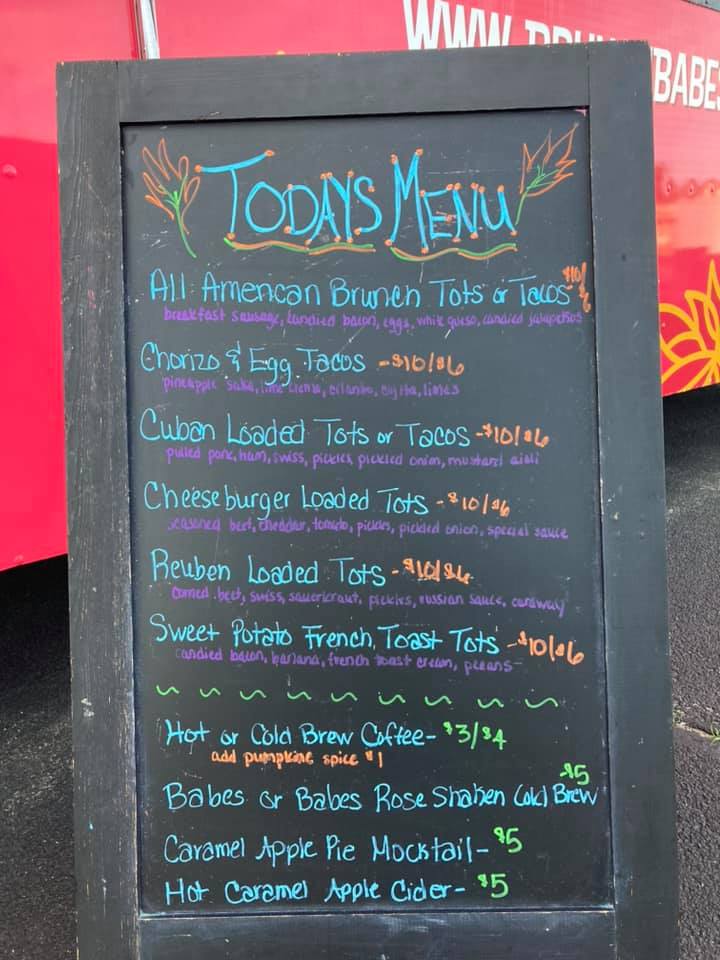 WWW.
BABES
TODAYS MENU
All American Brunch Tots or Tacos $10/
6
breakfast sausage, candied bacon, eggs, white queso, candied jalapeños
Chorizo & Egg Tacos - $10/$6
pineapple salsa, lime crema, cilantro, cojita, limes
Cuban Loaded Tots or Tacos - $10/$6
pulled pork, ham, swiss, pickles, pickled onion, mustard aioli
Cheeseburger Loaded Tots - $10/$6
seasoned beef, cheddar, tomato, pickles, pickled onion, special sauce
Reuben Loaded Tots - $10/$6
corned beef, swiss, sauerkraut, pickles, russian sauce, caraway
Sweet Potato French Toast Tots - $10/$6
candied bacon, banana, french toast cream, pecans
Hot or Cold Brew Coffee - $3/$4
add pumpkine spice $1
-$5
Babes or Babes Rose Shaken Cold Brew
Caramel Apple Pie Mocktail - $5
Hot Caramel Apple Cider - $5